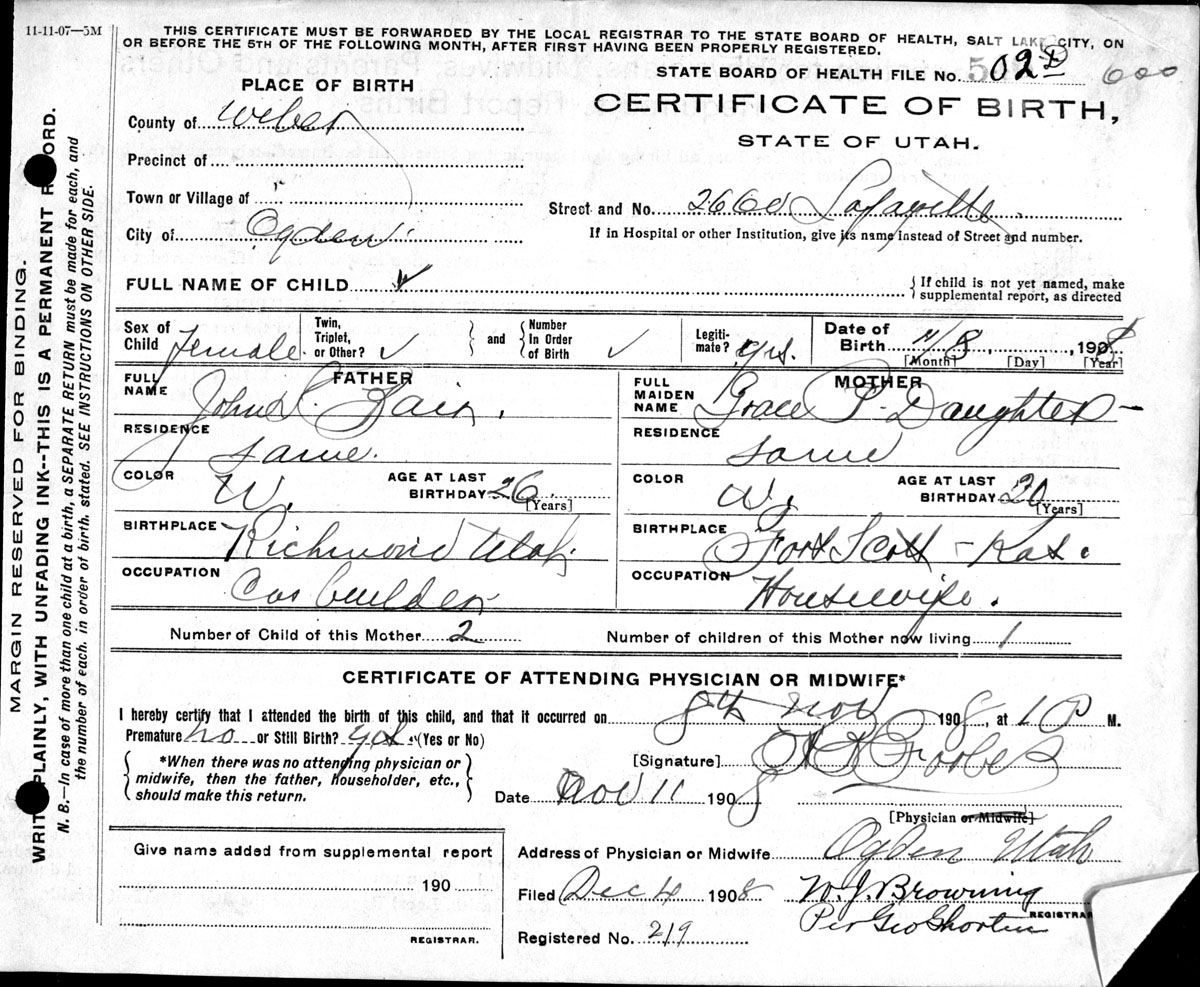 11-11-07—5M
THIS CERTIFICATE MUST BE FORWARDED BY THE LOCAL REGISTRAR TO THE STATE BOARD OF HEALTH, SALT LAKE CITY, ON
OR BEFORE THE 5TH OF THE FOLLOWING MONTH, AFTER FIRST HAVING BEEN PROPERLY REGISTERED.
STATE BOARD OF HEALTH FILE No. 502 600
CERTIFICATE OF BIRTH,
STATE OF UTAH.
PLACE OF BIRTH
County of Weber
Precinct of
Town or Village of "
City of Ogden
Street and No. 2660 Lafayette
If in Hospital or other Institution, give its name instead of Street and number.
FULL NAME OF CHILD
{ If child is not yet named, make
supplemental report, as directed
Sex of Child female
Twin, Triplet, or Other? ✓ } and { Number In Order of Birth ✓
Legitimate? yes.
Date of Birth 11/8, 1908
[Month] [Day] [Year]
FATHER
FULL NAME John
RESIDENCE same.
COLOR W.
AGE AT LAST BIRTHDAY 26 [Years]
BIRTHPLACE Richmond Utah
OCCUPATION Car builder
MOTHER
FULL MAIDEN NAME Grace P. Daughters
RESIDENCE same
COLOR W.
AGE AT LAST BIRTHDAY 20 [Years]
BIRTHPLACE Fort Scott - Kas.
OCCUPATION Housewife.
Number of Child of this Mother 2
Number of children of this Mother now living 1
CERTIFICATE OF ATTENDING PHYSICIAN OR MIDWIFE*
I hereby certify that I attended the birth of this child, and that it occurred on 8th Nov 1908, at 1 P M.
Premature no or Still Birth? yes. (Yes or No)
{ *When there was no attending physician or
midwife, then the father, householder, etc.,
should make this return. }
[Signature] Forbes
Date Nov 11 1908
[Physician or Midwife]
Give name added from supplemental report
190
REGISTRAR.
Address of Physician or Midwife Ogden Utah
Filed Dec 4 1908
W. J. Browning
Per Geo Shorten
REGISTRAR
Registered No. 219
MARGIN RESERVED FOR BINDING.
WRITE PLAINLY, WITH UNFADING INK--THIS IS A PERMANENT RECORD.
N. B.—In case of more than one child at a birth, a SEPARATE RETURN must be made for each, and
the number of each, in order of birth, stated. SEE INSTRUCTIONS ON OTHER SIDE.